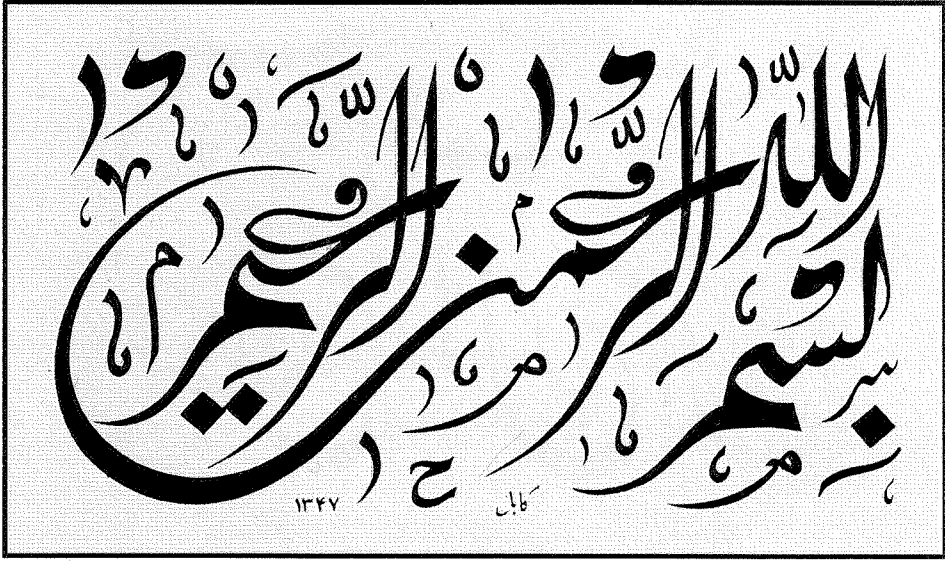 بسم الله الرحمن الرحيم
كابل ۱۳۴۷